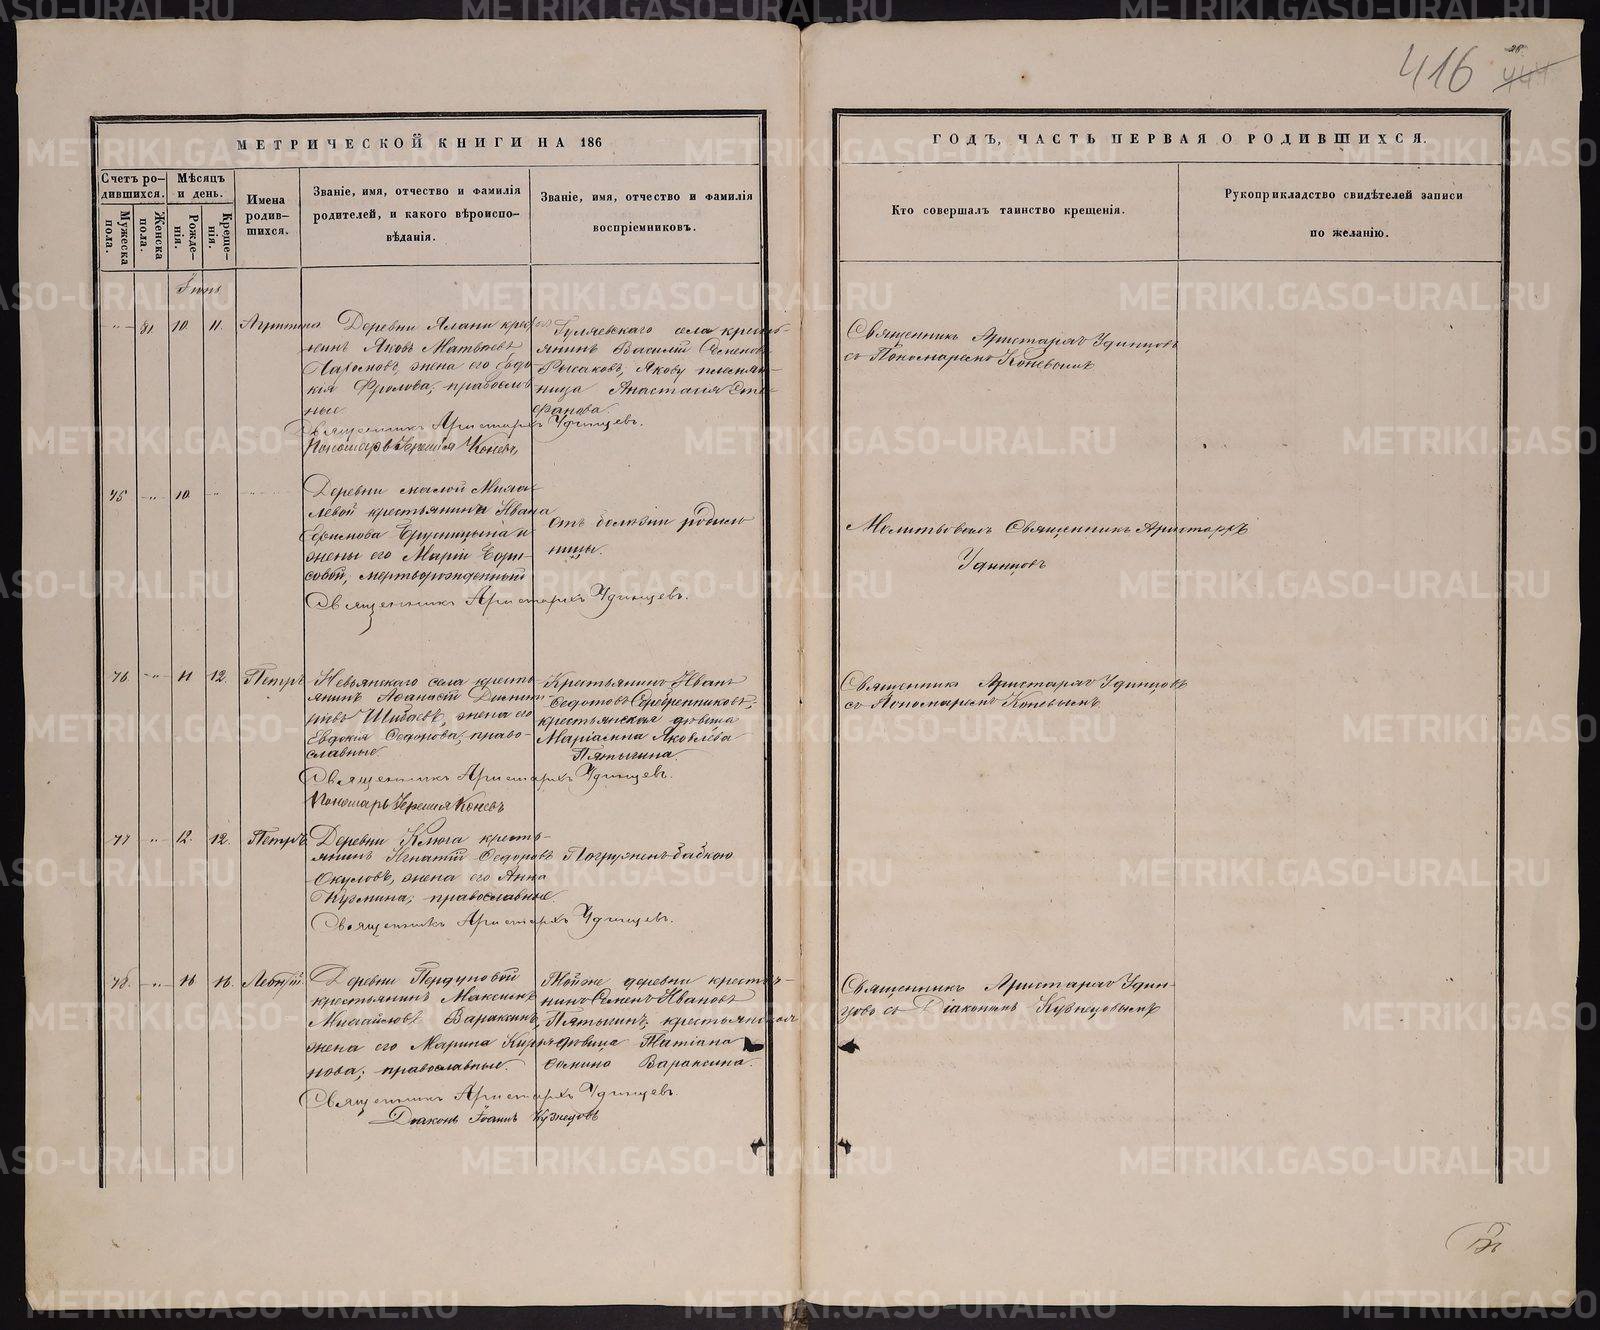 416
МЕТРИЧЕСКОЙ КНИГИ НА 186
ГОДЪ, ЧАСТЬ ПЕРВАЯ О РОДИВШИХСЯ.
Счетъ ро-
дившихся.
Мужеска пола.
Женска пола.
Мѣсяцъ
и день.
Рожде-
нія.
Креще-
нія.
Имена
родив-
шихся.
Званіе, имя, отчество и фамилія
родителей, и какого вѣроиспо-
вѣданія.
Званіе, имя, отчество и фамилія
воспріемниковъ.
Кто совершалъ таинство крещенія.
Рукоприкладство свидѣтелей записи
по желанію.
Іюнь
81 10. 11. Агрипина
Деревни Ялани крес
янинъ Яковъ Матвѣевъ
жена его Евдо-
кія Фролова, православ
ные.
Священникъ Аристархъ Удинцевъ.
Пономарь Іеремія Коневъ
Гуляевскаго села кресть-
янинъ Василій Семеновъ
Русаковъ, Якову племян-
ница Анастасія Сте-
фанова.
Священникъ Аристархъ Удинцовъ
съ Пономаремъ Коневымъ
75 10.
Деревни малой
левой крестьянина Ивана
Ефимова Брусницына и
жены его Маріи Бори-
совой, мертворожденный
Священникъ Аристархъ Удинцевъ.
отъ болѣзни родиль
ницы.
Молитвовалъ Священникъ Аристархъ
Удинцовъ
76 11 12. Петръ
Невьянскаго села кресть
янинъ Аѳанасій Дмитрі
евъ Шибаевъ, жена его
Евдокія Ѳедорова, право-
славные.
Священникъ Аристархъ Удинцевъ.
Пономарь Іеремія Коневъ
Крестьянинъ Иванъ
Ѳедотовъ Серебренниковъ,
крестьянская дѣвица
Маріамна Яковлева
Пятыгина.
Священникъ Аристархъ Удинцовъ
съ Пономаремъ Коневымъ
77 12. 12. Петръ
Деревни Ключа кресть-
янинъ Игнатій Ѳедоровъ
Окуловъ, жена его Анна
Кузмина, православные.
Священникъ Аристархъ Удинцевъ.
Погруженъ бабкою
78. Леонтій
Деревни Пердуновой
крестьянинъ Максимъ
Михайловъ Вараксинъ,
жена его Марина Кирья-
нова; православные.
Священникъ Аристархъ Удинцевъ.
Діаконъ Іоаннъ Кузнецовъ
Той же деревни кресть-
нинъ Семенъ Ивановъ
Пятыгинъ; крестьянская
дѣвица Татіана
Ѳомина Вараксина.
Священникъ Аристархъ Удин-
цовъ съ Діакономъ Кузнецовымъ
METRIKI.GASO-URAL.RU